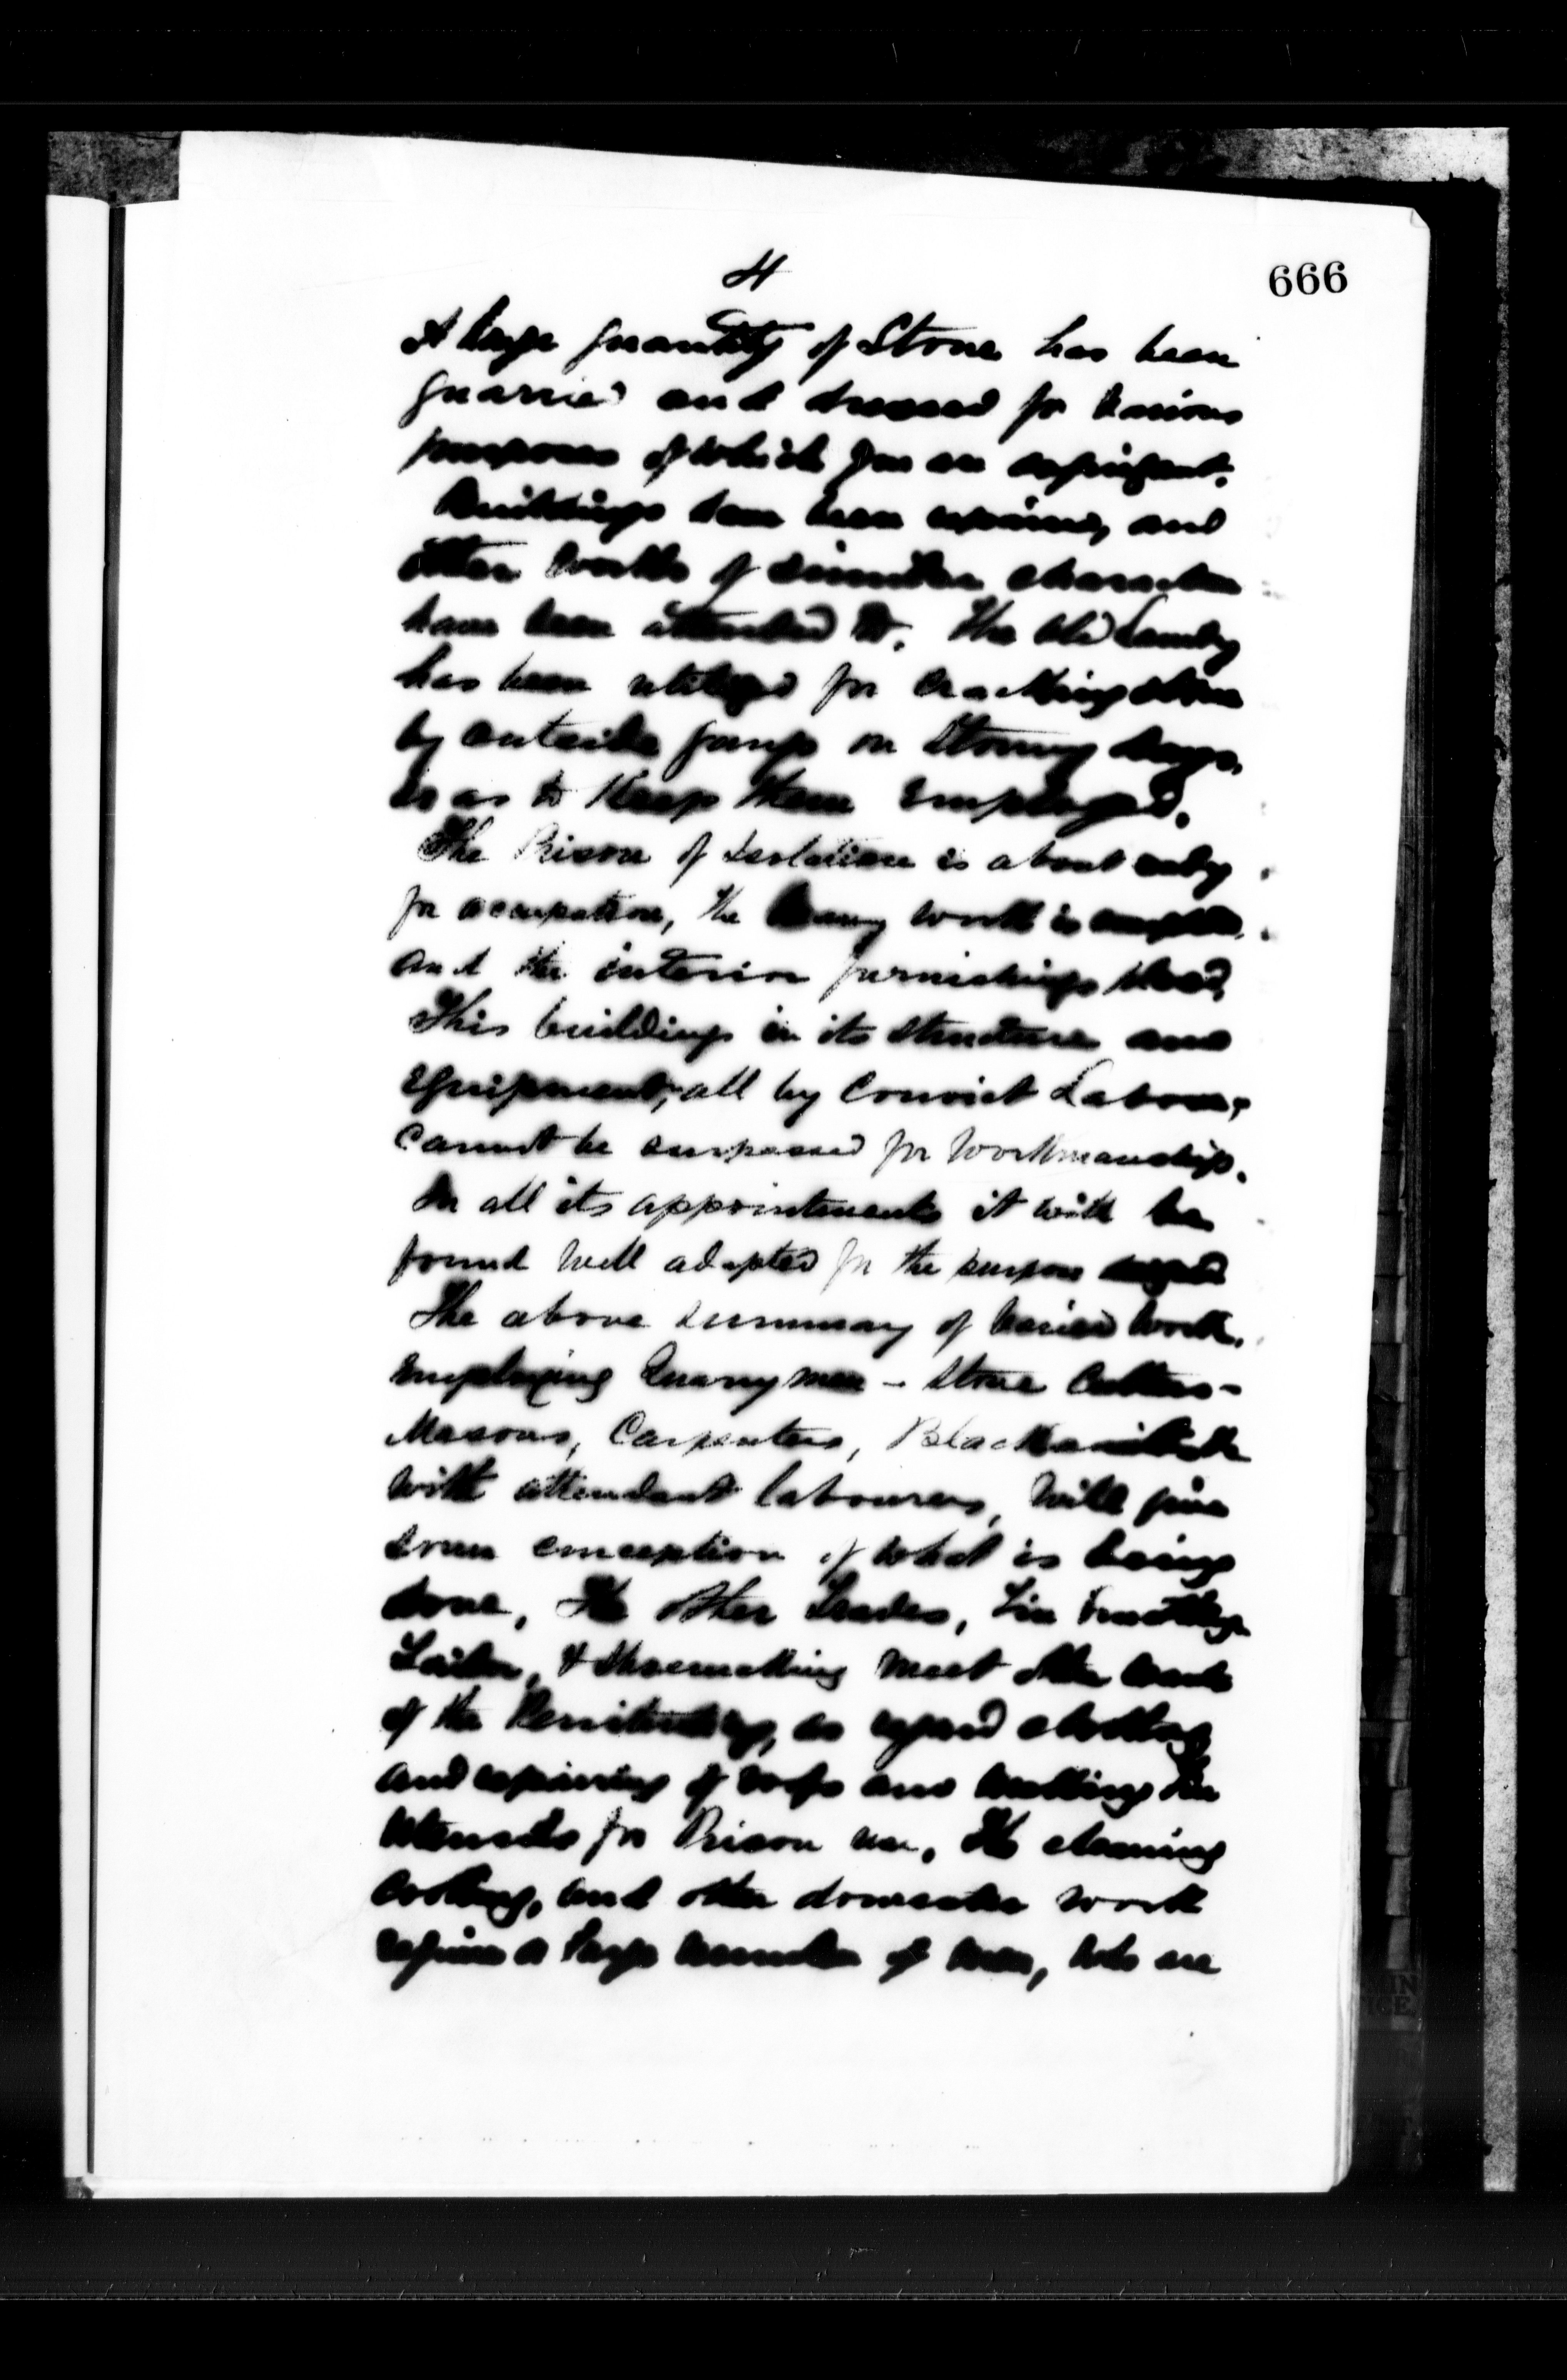 4
666
A large quantity of Stone has been
quarried and dressed for various
purposes of which you are cognizant.
Buildings have been repaired, and
other works of similar character
have been attended to. The old Laundry
has been utilized for cracking stone
by outside gangs on Stormy days,
so as to Keep them employed.
The Prison of Isolation is about ready
for occupation, the heavy work is completed,
and the interior furnishings
This building in its structure and
Equipment, all by Convict Labour,
cannot be surpassed for workmanship.
In all its appointments it will be
found well adapted for the purpose
The above summary of varied work,
Employing Quarrymen - Stone Cutters -
Masons, Carpenters, Blacksmiths
with attendant labourers, will give
some conception of what is being
done, The other trades, Tin
Tailor, & Shoemaking meet the wants
of the Penitentiary, as regard clothing
and repairing of roofs and making Tin
Utensils for Prison use, The cleaning
cooking, and other domestic work
require a large number of men, who are